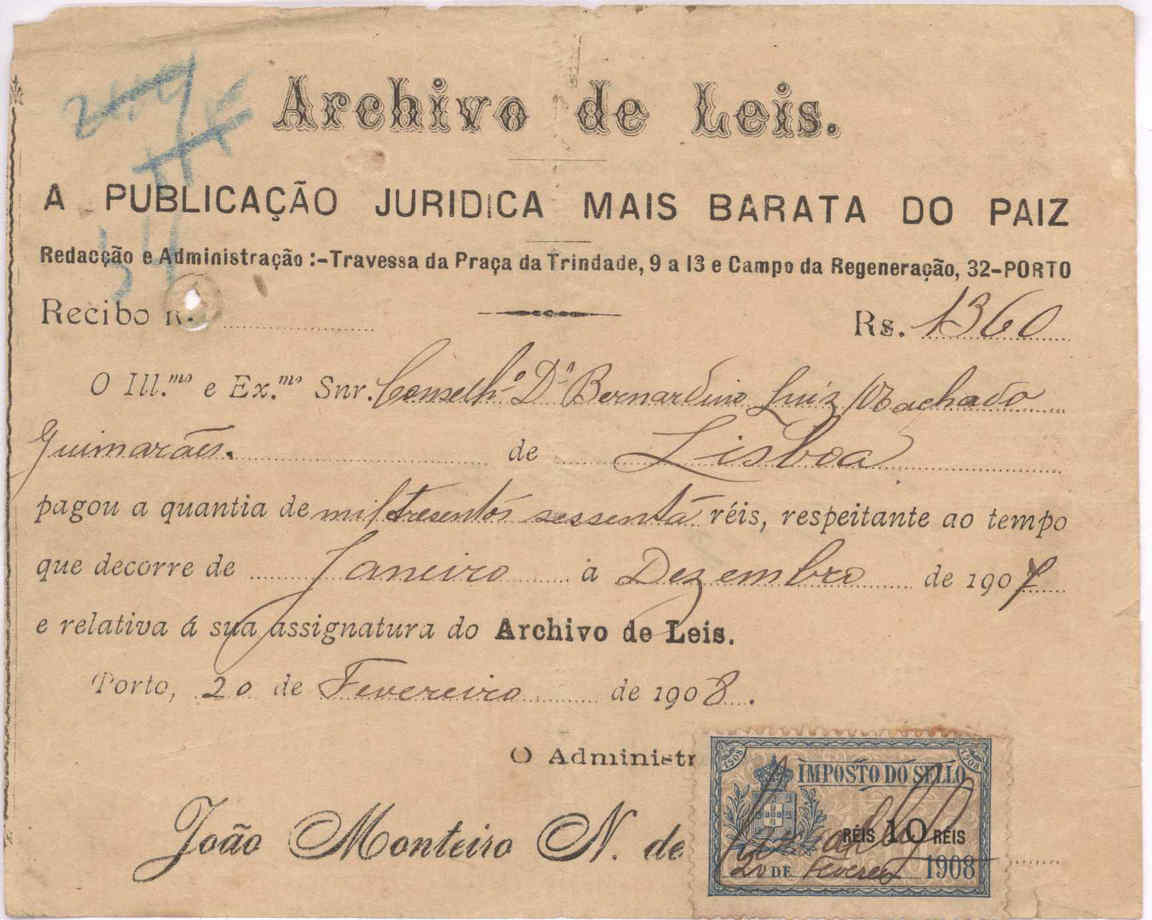 Archivo de Leis.
A PUBLICAÇÃO JURIDICA MAIS BARATA DO PAIZ
Redacção e Administração :-Travessa da Praça da Trindade, 9 a 13 e Campo da Regeneração, 32-PORTO
Recibo Rs. 1360
O Ill.mo e Ex.mo Snr. Conselh.o D.r Bernardino Luiz Machado
Guimarães. de Lisboa
pagou a quantia de mil tresentos sessenta réis, respeitante ao tempo
que decorre de Janeiro a Dezembro de 1907
e relativa á sua assignatura do Archivo de Leis.
Porto, 20 de Fevereiro de 1908.
O Administr
João Monteiro N. de
1908 1908
IMPOSTO DO SELLO
RÉIS 10 RÉIS
20 DE Fevereiro 1908